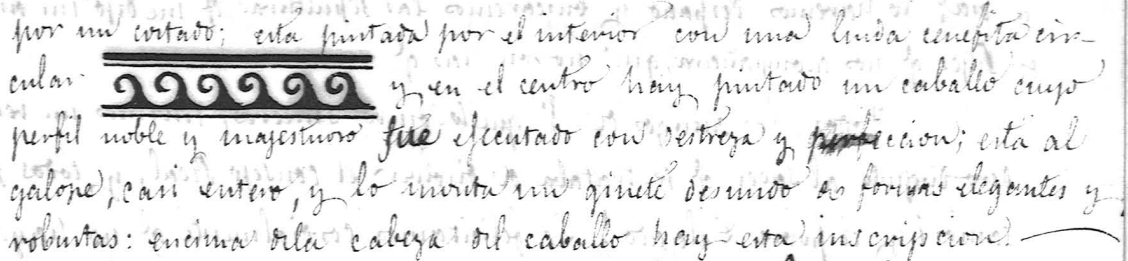 por un costado; esta pintada por el interior con una linda cenefita cir-
cular y en el centro hay pintado un caballo cuyo
perfil noble y majestuoso fué ejecutado con destreza y perfeccion; está al
galope, casi entero, y lo monta un ginete desnudo de formas elegantes y
robustas: encima dela cabeza del caballo hay esta inscripcion